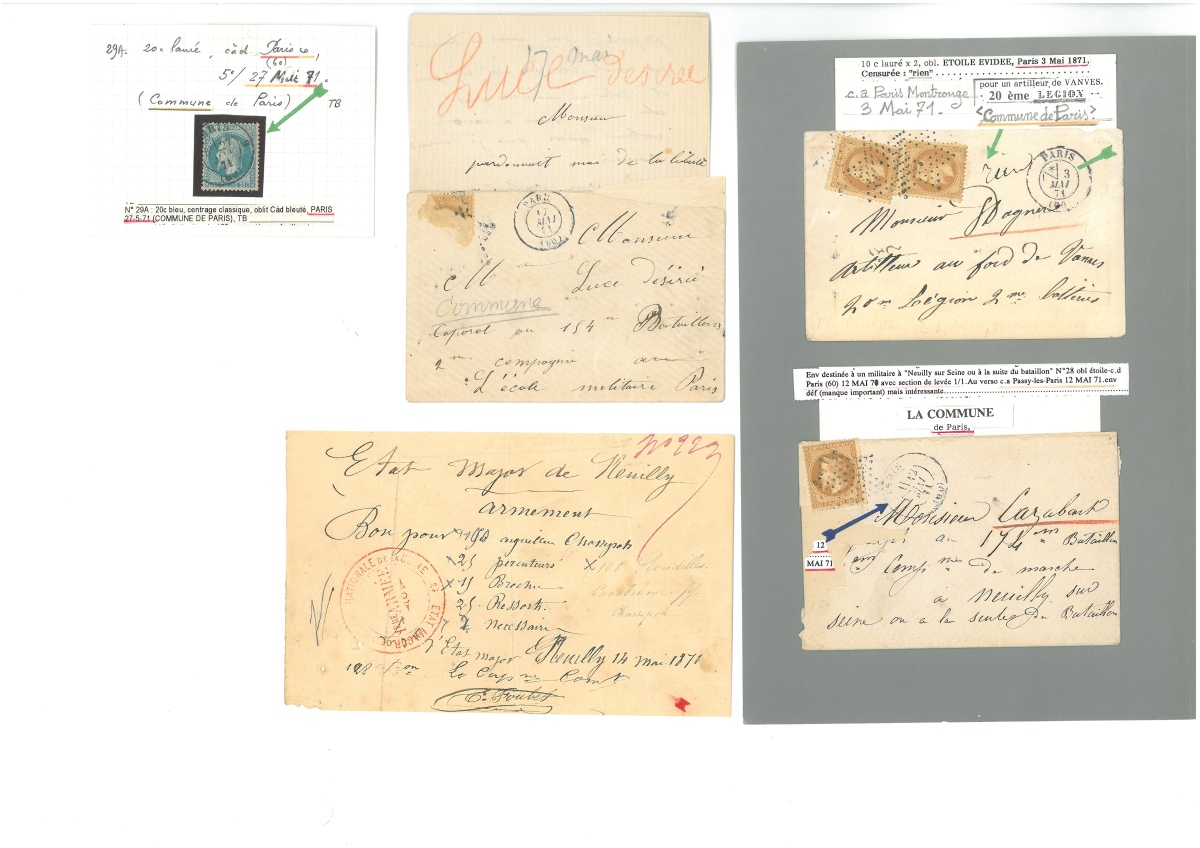 29A. 20c lauré, càd Paris
(60)
5e/ 27 71.
(Commune de Paris) TB
N° 29A : 20c bleu, centrage classique, oblit Càd bleuté, PARIS
27-5-71 (COMMUNE DE PARIS), TB
Luce Désirée
17 mai
Monsieur
pardonnait moi de la liberté
PARIS
17
MAI
71
(60)
Monsieur
M Luce Désirée
Commune
Caporal au 154 Bataillons
2me compagnie au
L'école militaire Paris
10 c lauré x 2, obl. ETOILE EVIDEE, Paris 3 Mai 1871,
Censurée : "rien"
pour un artilleur de VANVES.
c.a Paris Montrouge
20 ème LEGION
3 Mai 71.
<Commune de Paris>
rien
PARIS
3
MAI
71
(60)
Monsieur Dagner
artilleur au ford de Vanves
20m Légion 2me batteries
Env destinée à un militaire à "Neuilly sur Seine ou à la suite du bataillon" N°28 obl étoile-c.d
Paris (60) 12 MAI 70 avec section de levée 1/1.Au verso c.a Passy-les-Paris 12 MAI 71.env
déf (manque important) mais intéressante
LA COMMUNE
de Paris,
12
MAI 71
Monsieur Cazabant
au 174m Bataillon
Compnie de marche
à Neuilly sur
seine ou a la suite du Bataillon
No 923
Etat Major de Neuilly
armement
Bon pour 190 aiguilles Chassepots
25 percuteurs
15 Broches
25 Ressorts
1 necessaire
l'Etat Major Neuilly 14 mai 1871
128 Bon Le Capne Comt